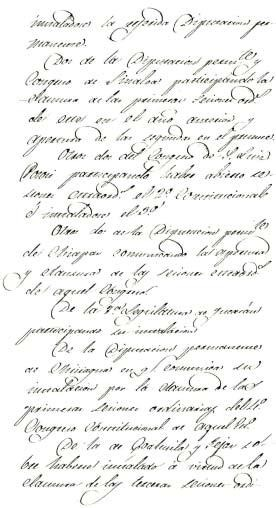 instaladose la referida Diputacion per-
manente.
Dos de la Diputacion perm.te y
Congreso de Sinaloa participando la
clausura de las primeras sesiones ord.s
de este en el año anterior, y
apertura de las segundas en el presente.
Otros dos del Congreso de S. Luis
Potosí participando haber abierto se-
siones estraord.s el 2º Constitucional
é instaladose el 3º
Otros de la Diputacion perm.te
de Chiapas comunicando la apertura
y clausura de las sesiones estraord.s
de aquel Congreso.
De la 2ª Legislatura de
participando su instalacion
De la Diputacion permanente
de Chihuahua en q.e comunica su
instalacion por la clausura de las
primeras sesiones ordinarias del
Congreso Constitucional de aquel
De la de Coahuila y Tejas so-
bre haberse instalado á virtud de la
clausura de las terceras sesiones ordi-